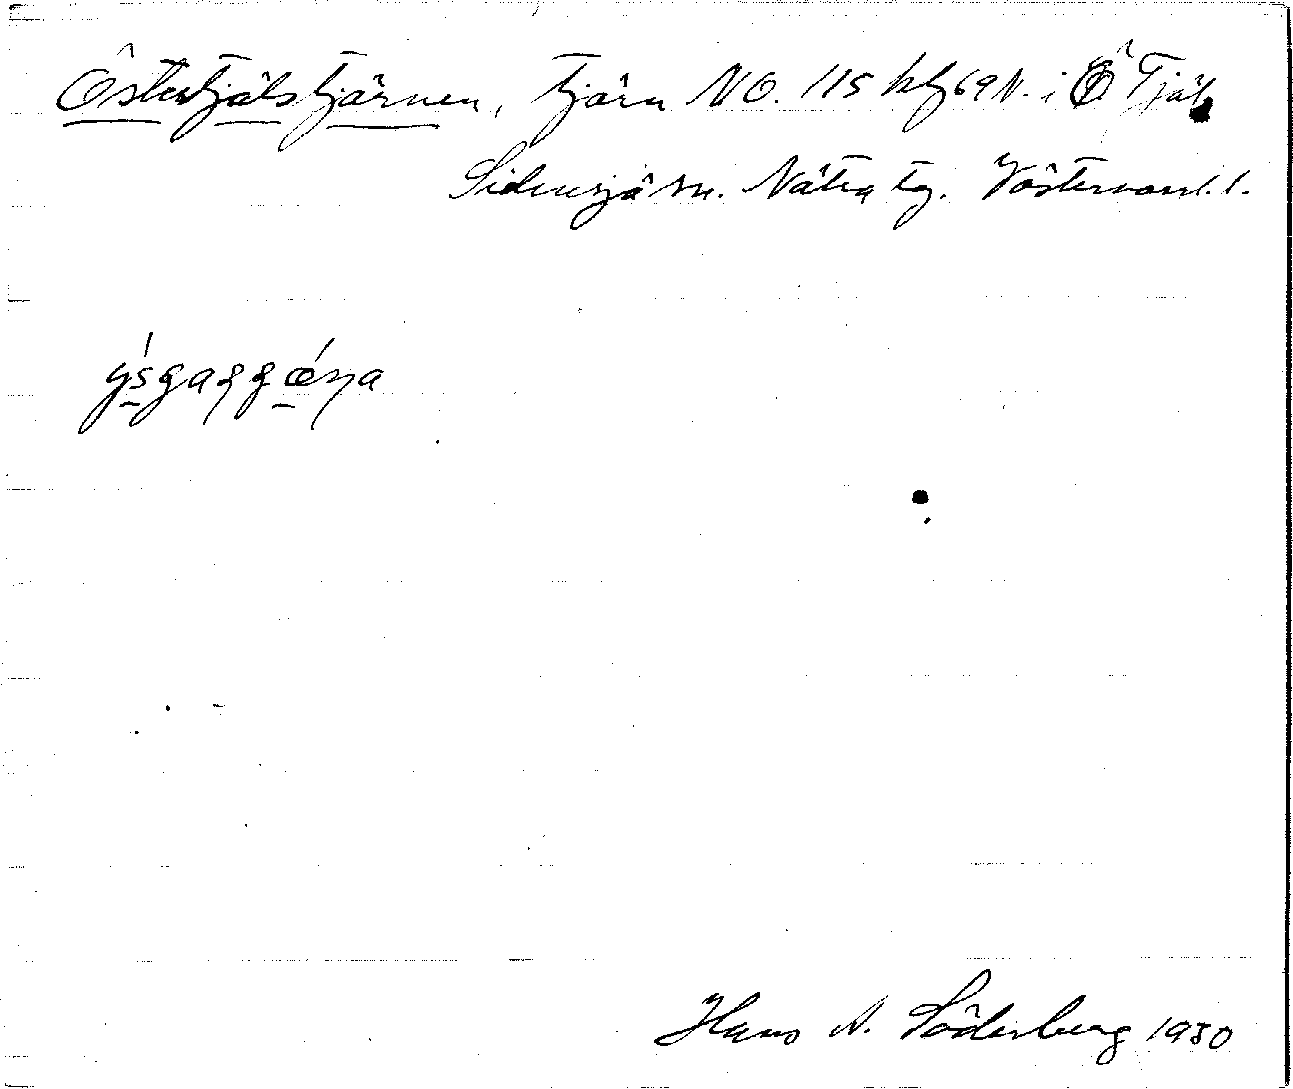 Östertjälstjärnen, tjärn NO. 115 hlf 69 N. i Ö Tjäl
Sidensjö sn. Nätra tg. Västernorrl. l.
Hans A. Söderberg 1930